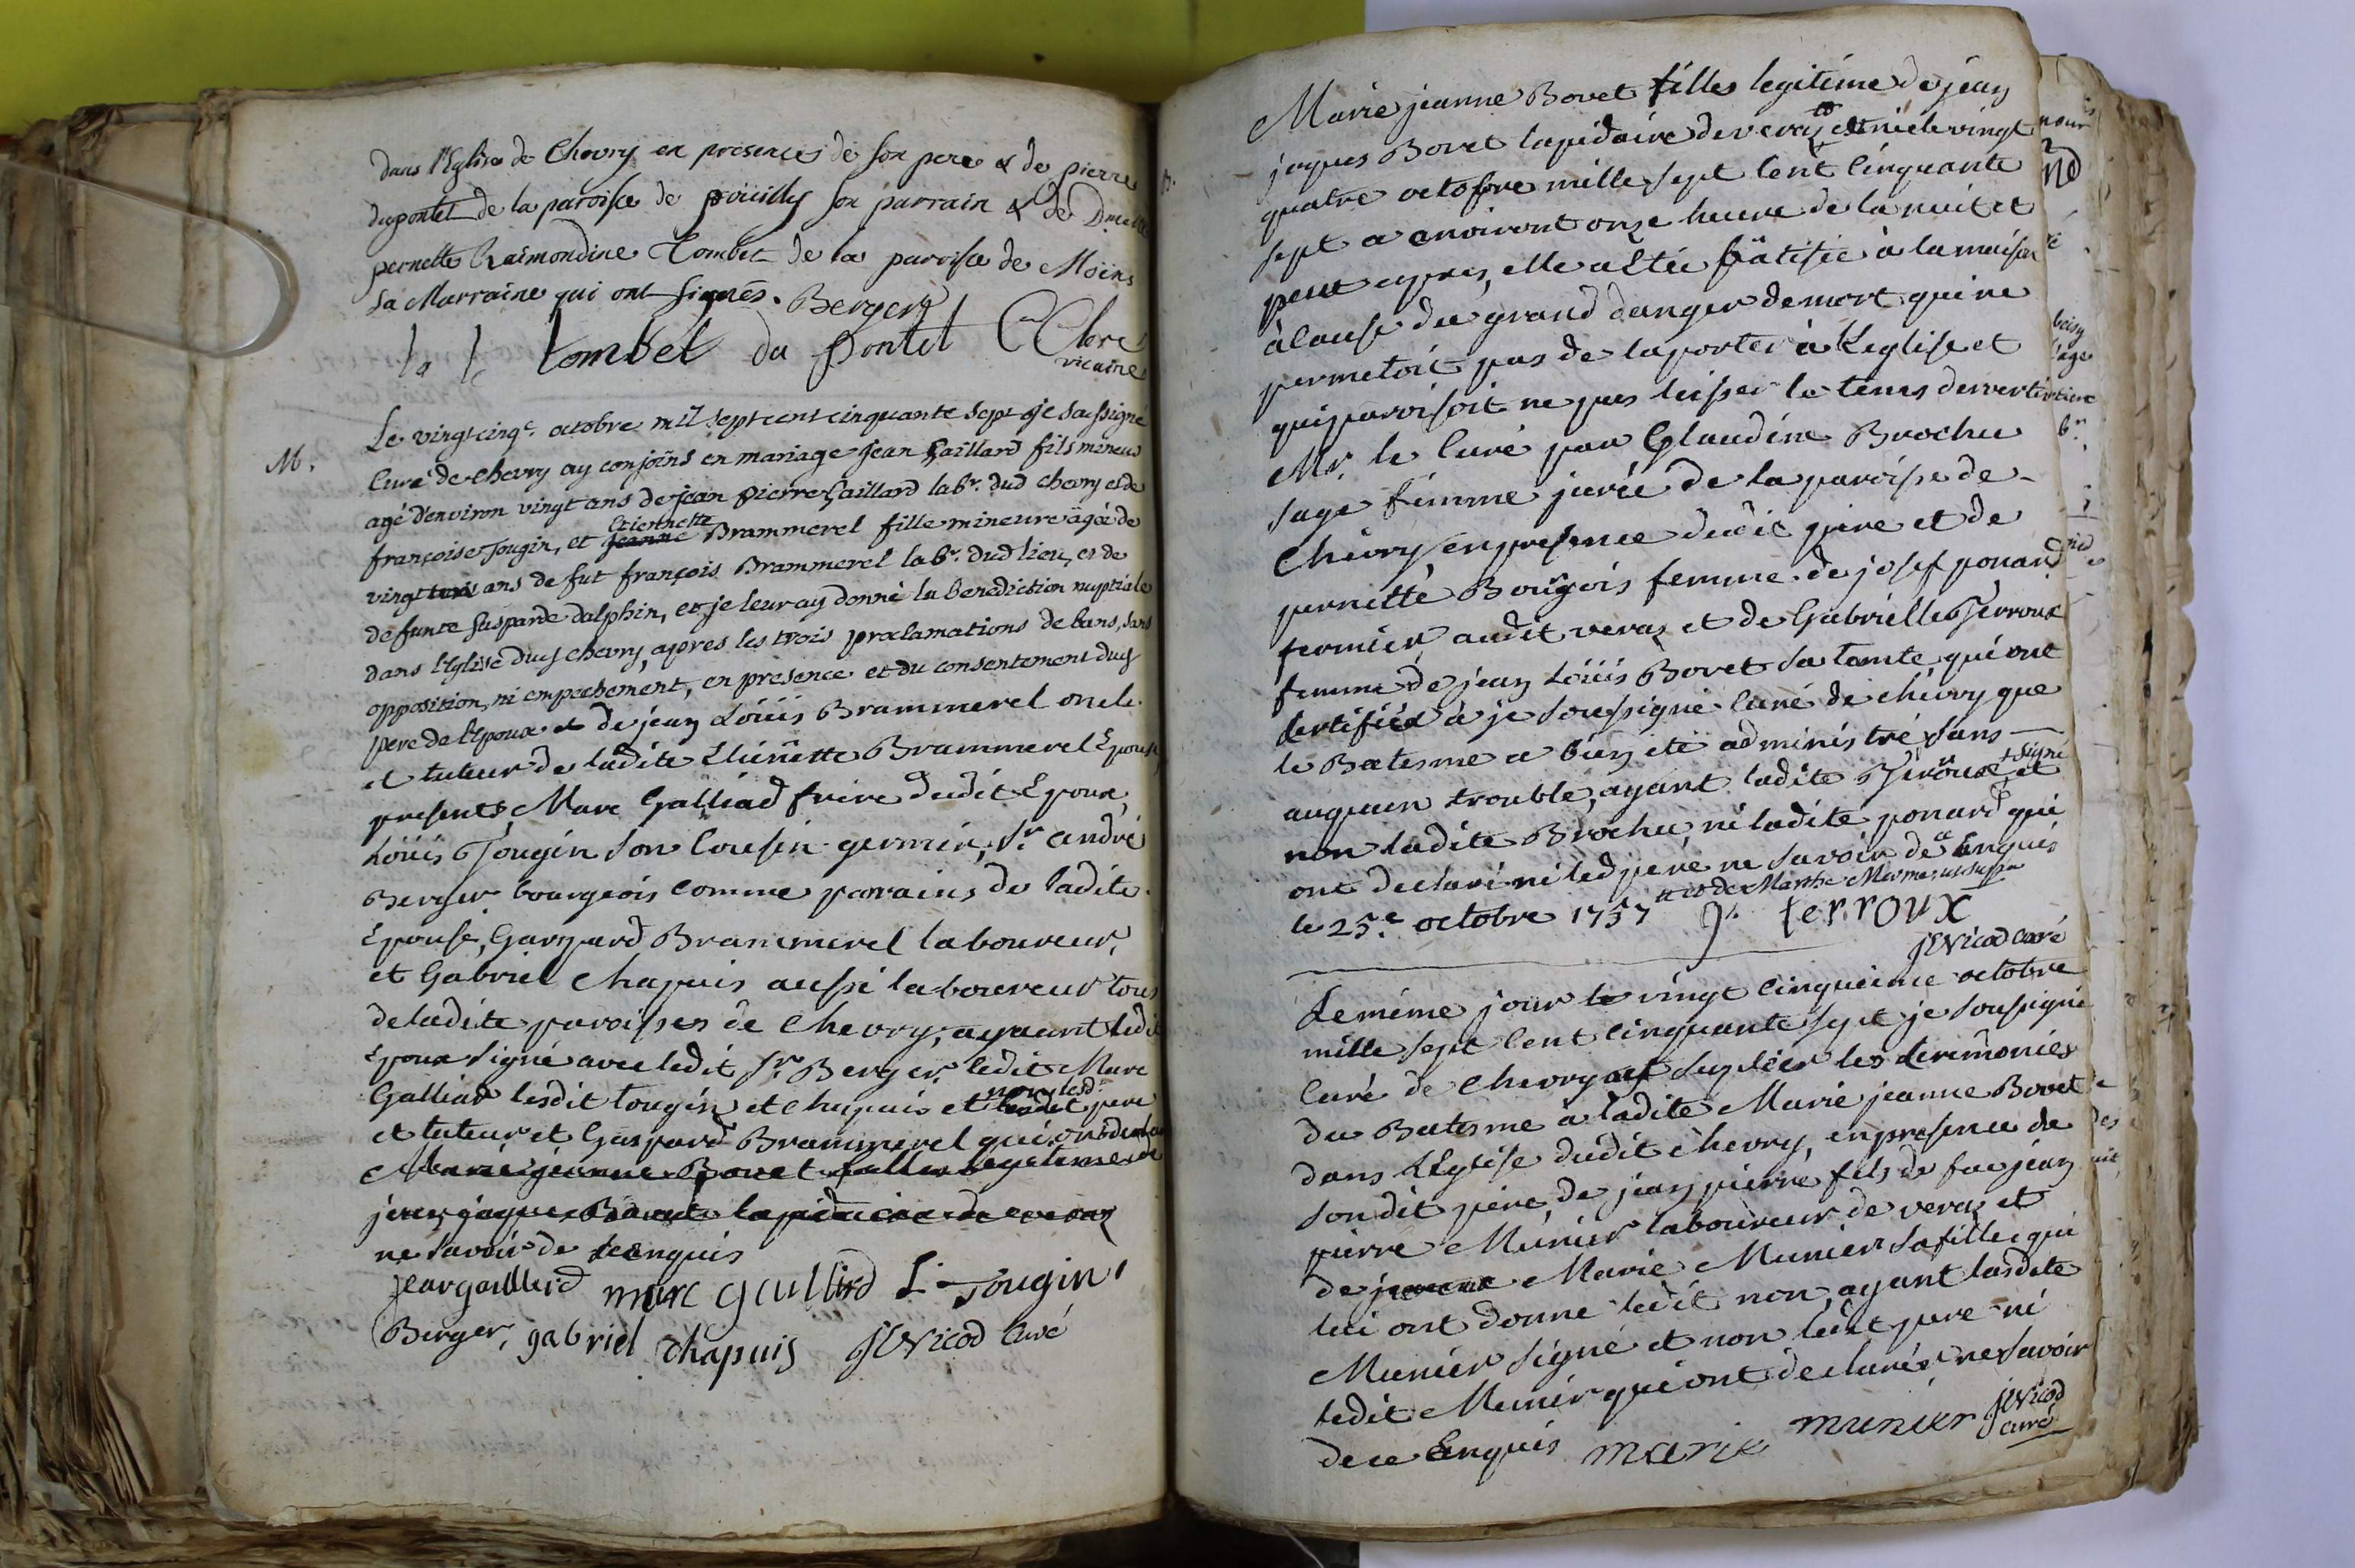 dans l'Eglise de Chevry en presences de son pere & de pierre
dupontet de la paroisse de pöuilly son parrain & de Dmelle
pernette Raimondine Tombet de la paroisse de Moïns
sa Marraine qui ont signés. Berger
tombet du pontet
vicaire
M.
Le vingt cinqe. octobre mil sept cent cinquante sept je soussigné
Curé de chevry ay conjoins en mariage jean Gaillard fils mineur
agé d'environ vingt ans de jean pierre Gaillard labr. dud chevry et de
françoise Tougin, et jeanne Etiennette Brammerel fille mineure âgée de
vingt trois ans de fut françois Brammerel labr. dud lieu, et de
defunte gasparde dalphin, et je leur ay donné la benediction nuptiale
dans l'Eglise dud chevry, apres les trois proclamations de bans, sans
opposition, ni empechement, en presence et du consentement dud
pere de l'Epoux et de jean Löüis Brammerel oncle
et tuteur de ladite Etiennette Brammerel Epouse,
presents, Marc Galliad frere dudit Epoux,
Löüis Tougin son Cousin germin, Sr. andré
Berger bourgeois comme parains de ladite
Epouse, Gaspard Brammerel laboureur,
et Gabriel Chapuis aussi laboureur tous
de ladite paroisses de Chevry, ayant ledit
Epoux signé avec ledit Sr. Berger, ledit Marc
Galliad lesdit tougin et Chapuis et non led. pere
et tuteur et Gaspard Brammerel qui ont declaré
Marie jeanne Bovet filles legetime de
jean jaques Bovet lapidaire de veraz
ne savoir de ce enquis
jean gailliard marc gailliard L. Tougin
Berger, gabriel chapuis JE Nicod Curé
Marie jeanne Bovet filles legitime de jean
jaques Bovet lapidaire de veraz est née le vingt
quatre octobre mille sept Cent Cinquante
sept a environt onze heure de la nuit et
peut apres, elle a Etée bâtisée à la maison
à Cause du grand danger de mort qui ne
permetoit pas de la porter à L'eglise et
qui paroisoit ne pas leisser le tems de avertir
Mr. le Curé par Glaudine Brochu
sage femme jurée de la paroisse de
Chevry, en presence dudit pere et de
pernette Bourgois femme de josef ponard
fermier audit veraz et de Gabrielle Terroux
femme de jean Löüis Bovet sa Tante, qui ont
Certifiéz à je soussigné Curé de chevry que
le Batesme a bien été administré sans
auquun trouble, ayant ladite Terroux signé et
non ladite Brochu ni ladite ponard qui
ont declaré ni led pere ne savoir de ce Enquis
le 25.e octobre 1757
g. terroux
JE Nicod curé
Le même jour le vingt Cinquieme octobre
mille sept Cent Cinquante sept je sousigné
Curé de Chevry ait supléer les Ceremonies
du Batesme à ladite Marie jeanne Bovet
dans L'Eglise dudit Chevry, en presence de
son dit pere, de jean pierre fils de feu jean
pierre Munier laboureur de veraz et
de jeanne Marie Munier sa fille qui
lui ont donne ledit non, ayant lasdite
Munier signé et non ledit pere ni
ledit Munier qui ont declaréz ne savoir
de ce Enquis marie munier JE Nicod
curé